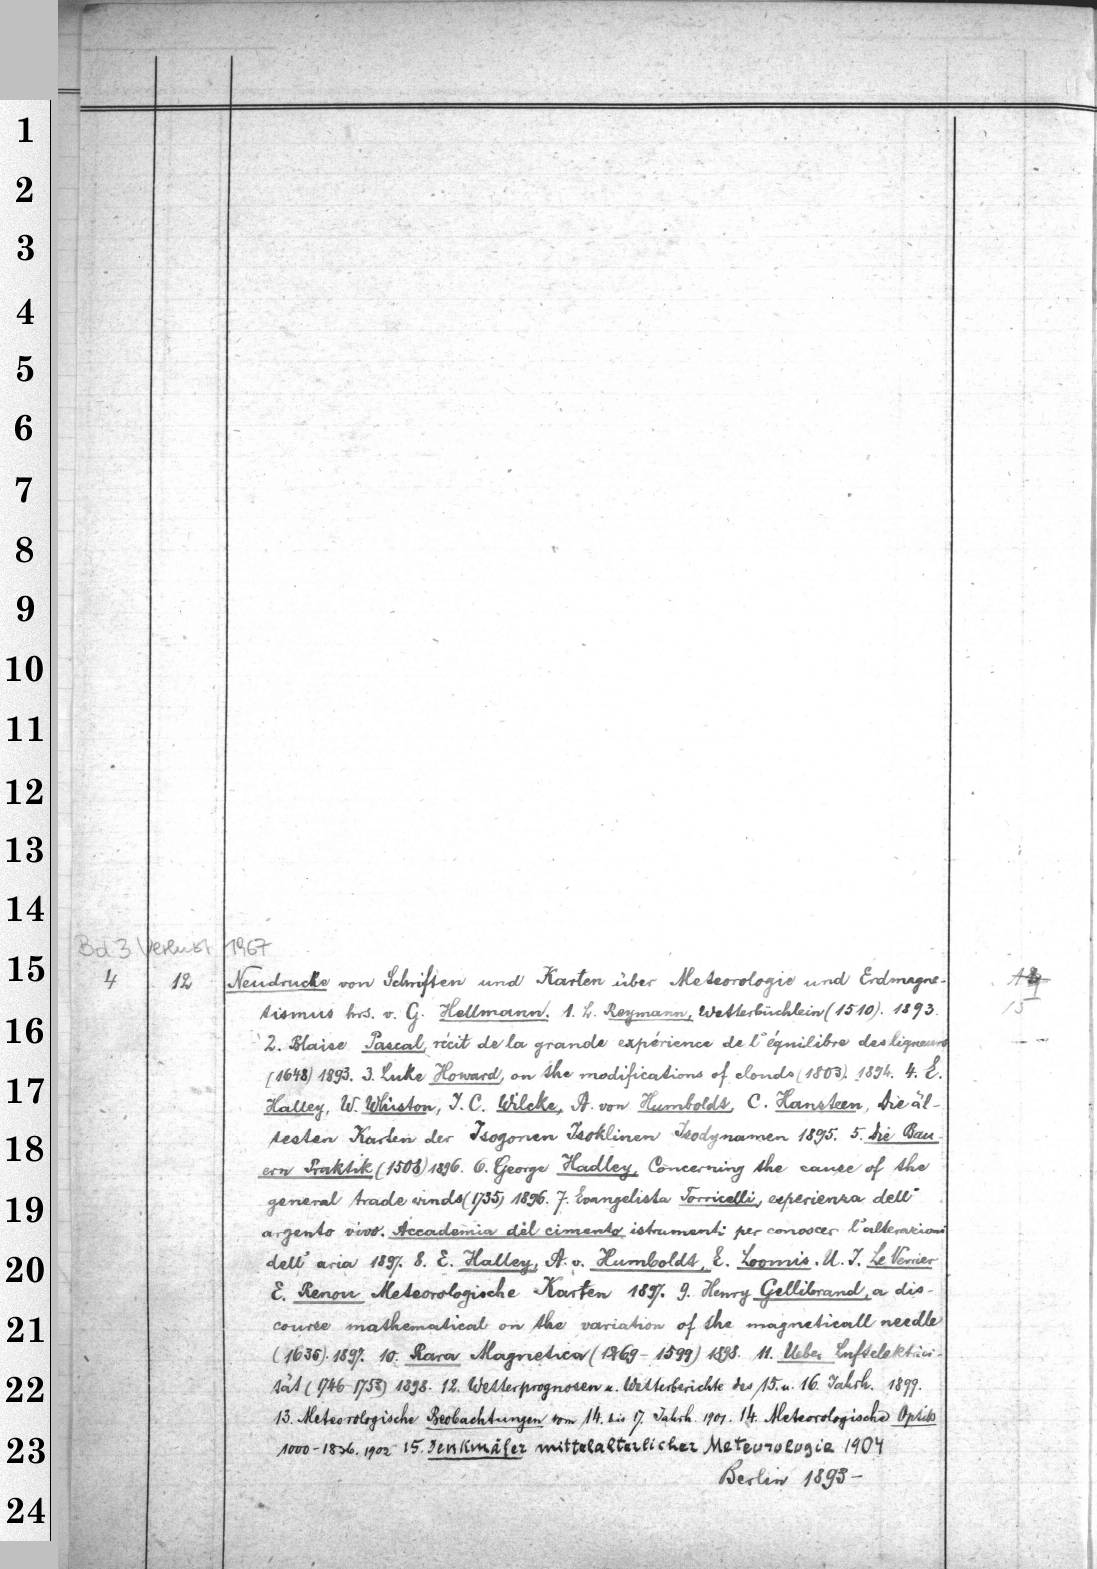 1
2
3
4
5
6
7
8
9
10
11
12
13
14
Bd 3 Verlust 1967
15 4 12 Neudrucke von Schriften und Karten über Meteorologie und Erdmagne-
tismus hrs. v. G. Hellmann. 1. L. Reymann, Wetterbüchlein (1510). 1893. 15
16 2. Blaise Pascal, récit de la grande expérience de l'équilibre des liqueurs
(1648) 1893. 3. Luke Howard, on the modifications of clouds (1803). 1894. 4. E.
17 Halley, W. Whiston, J. C. Wilcke, A. von Humboldt, C. Hansteen, Die äl-
testen Karten der Isogonen Isoklinen Isodynamen 1895. 5. Die Bau-
18 ern Praktik (1508) 1896. 6. George Hadley, Concerning the cause of the
general trade winds (1735) 1896. 7. Evangelista Torricelli, esperienza dell'
19 argento vivo. Accademia del cimento istrumenti per conoscer l'alterazioni
dell' aria 1897. 8. E. Halley, A. v. Humboldt, E. Loomis. U. J. Le Verrier
20 E. Renou Meteorologische Karten 1897. 9. Henry Gellibrand, a dis-
21 course mathematical on the variation of the magneticall needle
(1635). 1897. 10. Rara Magnetica (1269-1599) 1898. 11. Ueber Luftelektrici-
22 tät (1746-1753) 1898. 12. Wetterprognosen u. Wetterberichte des 15. u. 16. Jahrh. 1899.
13. Meteorologische Beobachtungen vom 14. bis 17. Jahrh. 1901. 14. Meteorologische Optik
23 1000-1836. 1902 15. Denkmäler mittelalterlicher Meteorologie 1904
Berlin 1893-
24